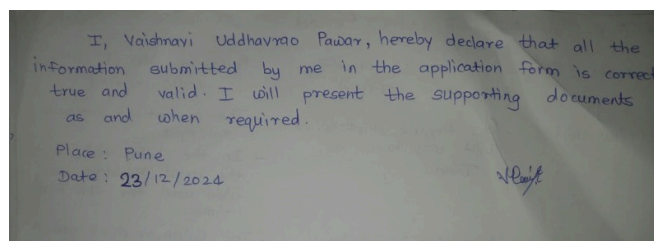 I, Vaishnavi Uddhavrao Pawar, hereby declare that all the
information submitted by me in the application form is correct
true and valid. I will present the supporting documents
as and when required.
Place : Pune
Date : 23/12/2024